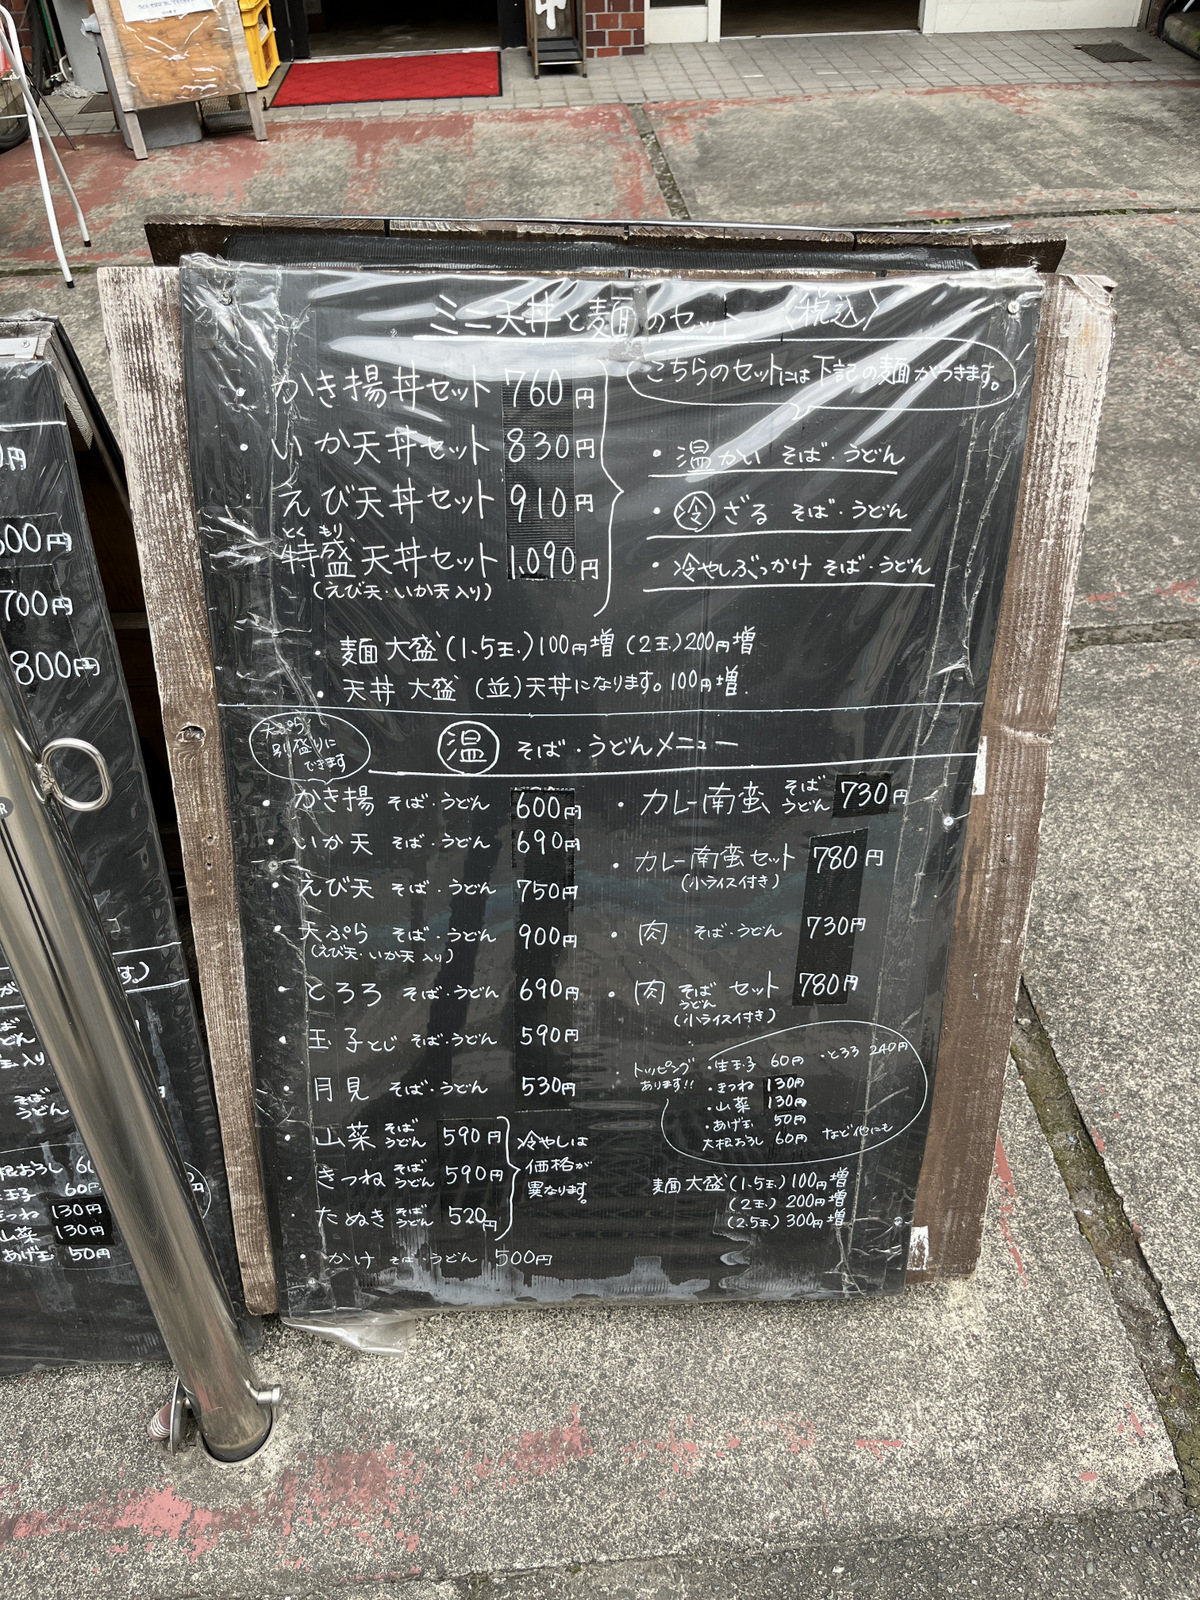 ミニ天丼と麺のセット 〈税込〉
・かき揚丼セット 760円
・いか天丼セット 830円
えび天丼セット 910円
とくもり
特盛天丼セット 1,090円
(えび天・いか天入り)
こちらのセットには下記の麺がつきます。
・温かい そば・うどん
・冷ざる そば・うどん
・冷やしぶっかけ そば・うどん
・麺大盛(1.5玉)100円増(2玉)200円増
・天丼 大盛(並)天丼になります。100円増.
天ぷら
別盛りに
できます
温 そば・うどんメニュー
・かき揚 そば・うどん 600円
・いか天 そば・うどん 690円
・えび天 そば・うどん 750円
・天ぷら そば・うどん 900円
(えび天・いか天入り)
・とろろ そば・うどん 690円
・玉子とじ そば・うどん 590円
・月見 そば・うどん 530円
・山菜 そば うどん 590円
・きつね そば うどん 590円
・たぬき そば うどん 520円
冷やしは
価格が
異なります。
・かけ そば・うどん 500円
・カレー南蛮 そば うどん 730円
・カレー南蛮セット 780円
(小ライス付き)
・肉 そば・うどん 730円
・肉 そば うどん セット 780円
(小ライス付き)
・トッピング
あります!!
・生玉子 60円 ・とろろ 240円
・きつね 130円
・山菜 130円
・あげ玉 50円
大根おろし 60円 など他にも
麺大盛(1.5玉)100円増
(2玉)200円増
(2.5玉)300円増
円
700円
800円
す。)
そば
うどん
60円
きつね 130円
山菜 130円
あげ玉 50円